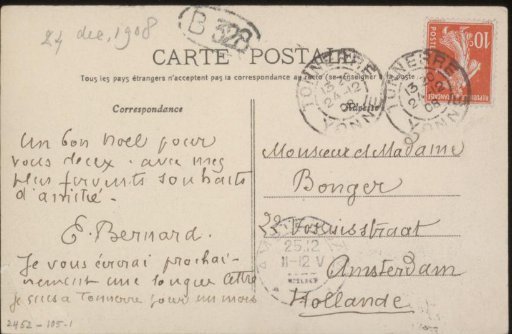 24 dec, 1908
B 328
CARTE POSTALE
Tous les pays étrangers n'acceptent pas la correspondance au recto (se renseigner à la poste
TONNERRE
YONNE
TONNERRE
YONNE
10
REPUBLIQUE FRANÇAISE
Correspondance
Adresse
Un bon Noel pour
vous deux. avec mes
plus fervents souhaits
d'amitié.
E. Bernard.
Je vous écrirai prochai-
nement une longue lettre
je suis à Tonnerre pour un mois
Monsieur et Madame
Bonger
22 Vossiusstraat
25.12
11-12 V
Amsterdam
Hollande
2452-105-1